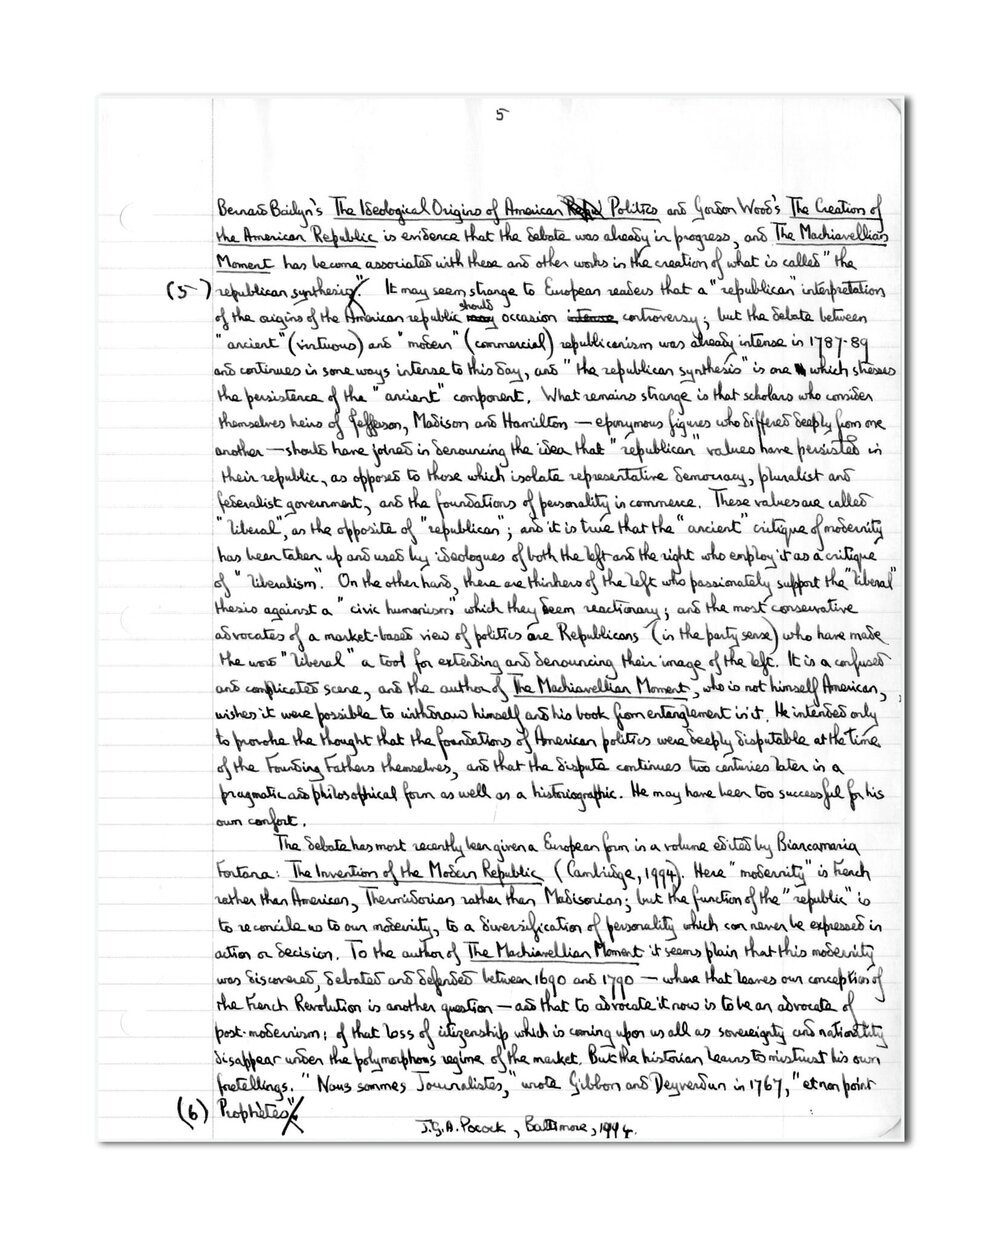 5
Bernard Bailyn's The Ideological Origins of American Politics and Gordon Wood's The Creation of
the American Republic is evidence that the debate was already in progress, and The Machiavellian
Moment has become associated with these and other works in the creation of what is called "the
(5) republican synthesis". It may seem strange to European readers that a "republican" interpretation
of the origins of the American republic should occasion intense controversy; but the debate between
"ancient" (virtuous) and "modern" (commercial) republicanism was already intense in 1787-89
and continues in some ways intense to this day, and "the republican synthesis" is one which stresses
the persistence of the "ancient" component. What remains strange is that scholars who consider
themselves heirs of Jefferson, Madison and Hamilton — eponymous figures who differed deeply from one
another — should have joined in denouncing the idea that "republican" values have persisted in
their republic, as opposed to those which isolate representative democracy, pluralist and
federalist government, and the foundations of personality in commerce. These values are called
"liberal", as the opposite of "republican"; and it is true that the "ancient" critique of modernity
has been taken up and used by ideologues of both the left and the right who employ it as a critique
of "liberalism". On the other hand, there are thinkers of the left who passionately support the "liberal"
thesis against a "civic humanism" which they deem reactionary; and the most conservative
advocates of a market-based view of politics are Republicans (in the party sense) who have made
the word "liberal" a tool for extending and denouncing their image of the left. It is a confused
and complicated scene, and the author of The Machiavellian Moment, who is not himself American,
wishes it were possible to withdraw himself and his book from entanglement in it. He intended only
to provoke the thought that the foundations of American politics were deeply disputable at the time
of the Founding Fathers themselves, and that the dispute continues two centuries later in a
pragmatic and philosophical form as well as a historiographic. He may have been too successful for his
own comfort.
The debate has most recently been given a European form in a volume edited by Biancamaria
Fontana: The Invention of the Modern Republic (Cambridge, 1994). Here "modernity" is French
rather than American, Thermidorian rather than Madisonian; but the function of the "republic" is
to reconcile us to our modernity, to a diversification of personality which can never be expressed in
action or decision. To the author of The Machiavellian Moment it seems plain that this modernity
was discovered, debated and defended between 1690 and 1790 — where that leaves our conception of
the French Revolution is another question — and that to advocate it now is to be an advocate of
post-modernism; of that loss of citizenship which is coming upon us all as sovereignty and nationality
disappear under the polymorphous regime of the market. But the historian learns to mistrust his own
foretellings. "Nous sommes Journalistes," wrote Gibbon and Deyverdun in 1767, "et non point
(6) Prophètes".
J.G.A. Pocock, Baltimore, 1994.